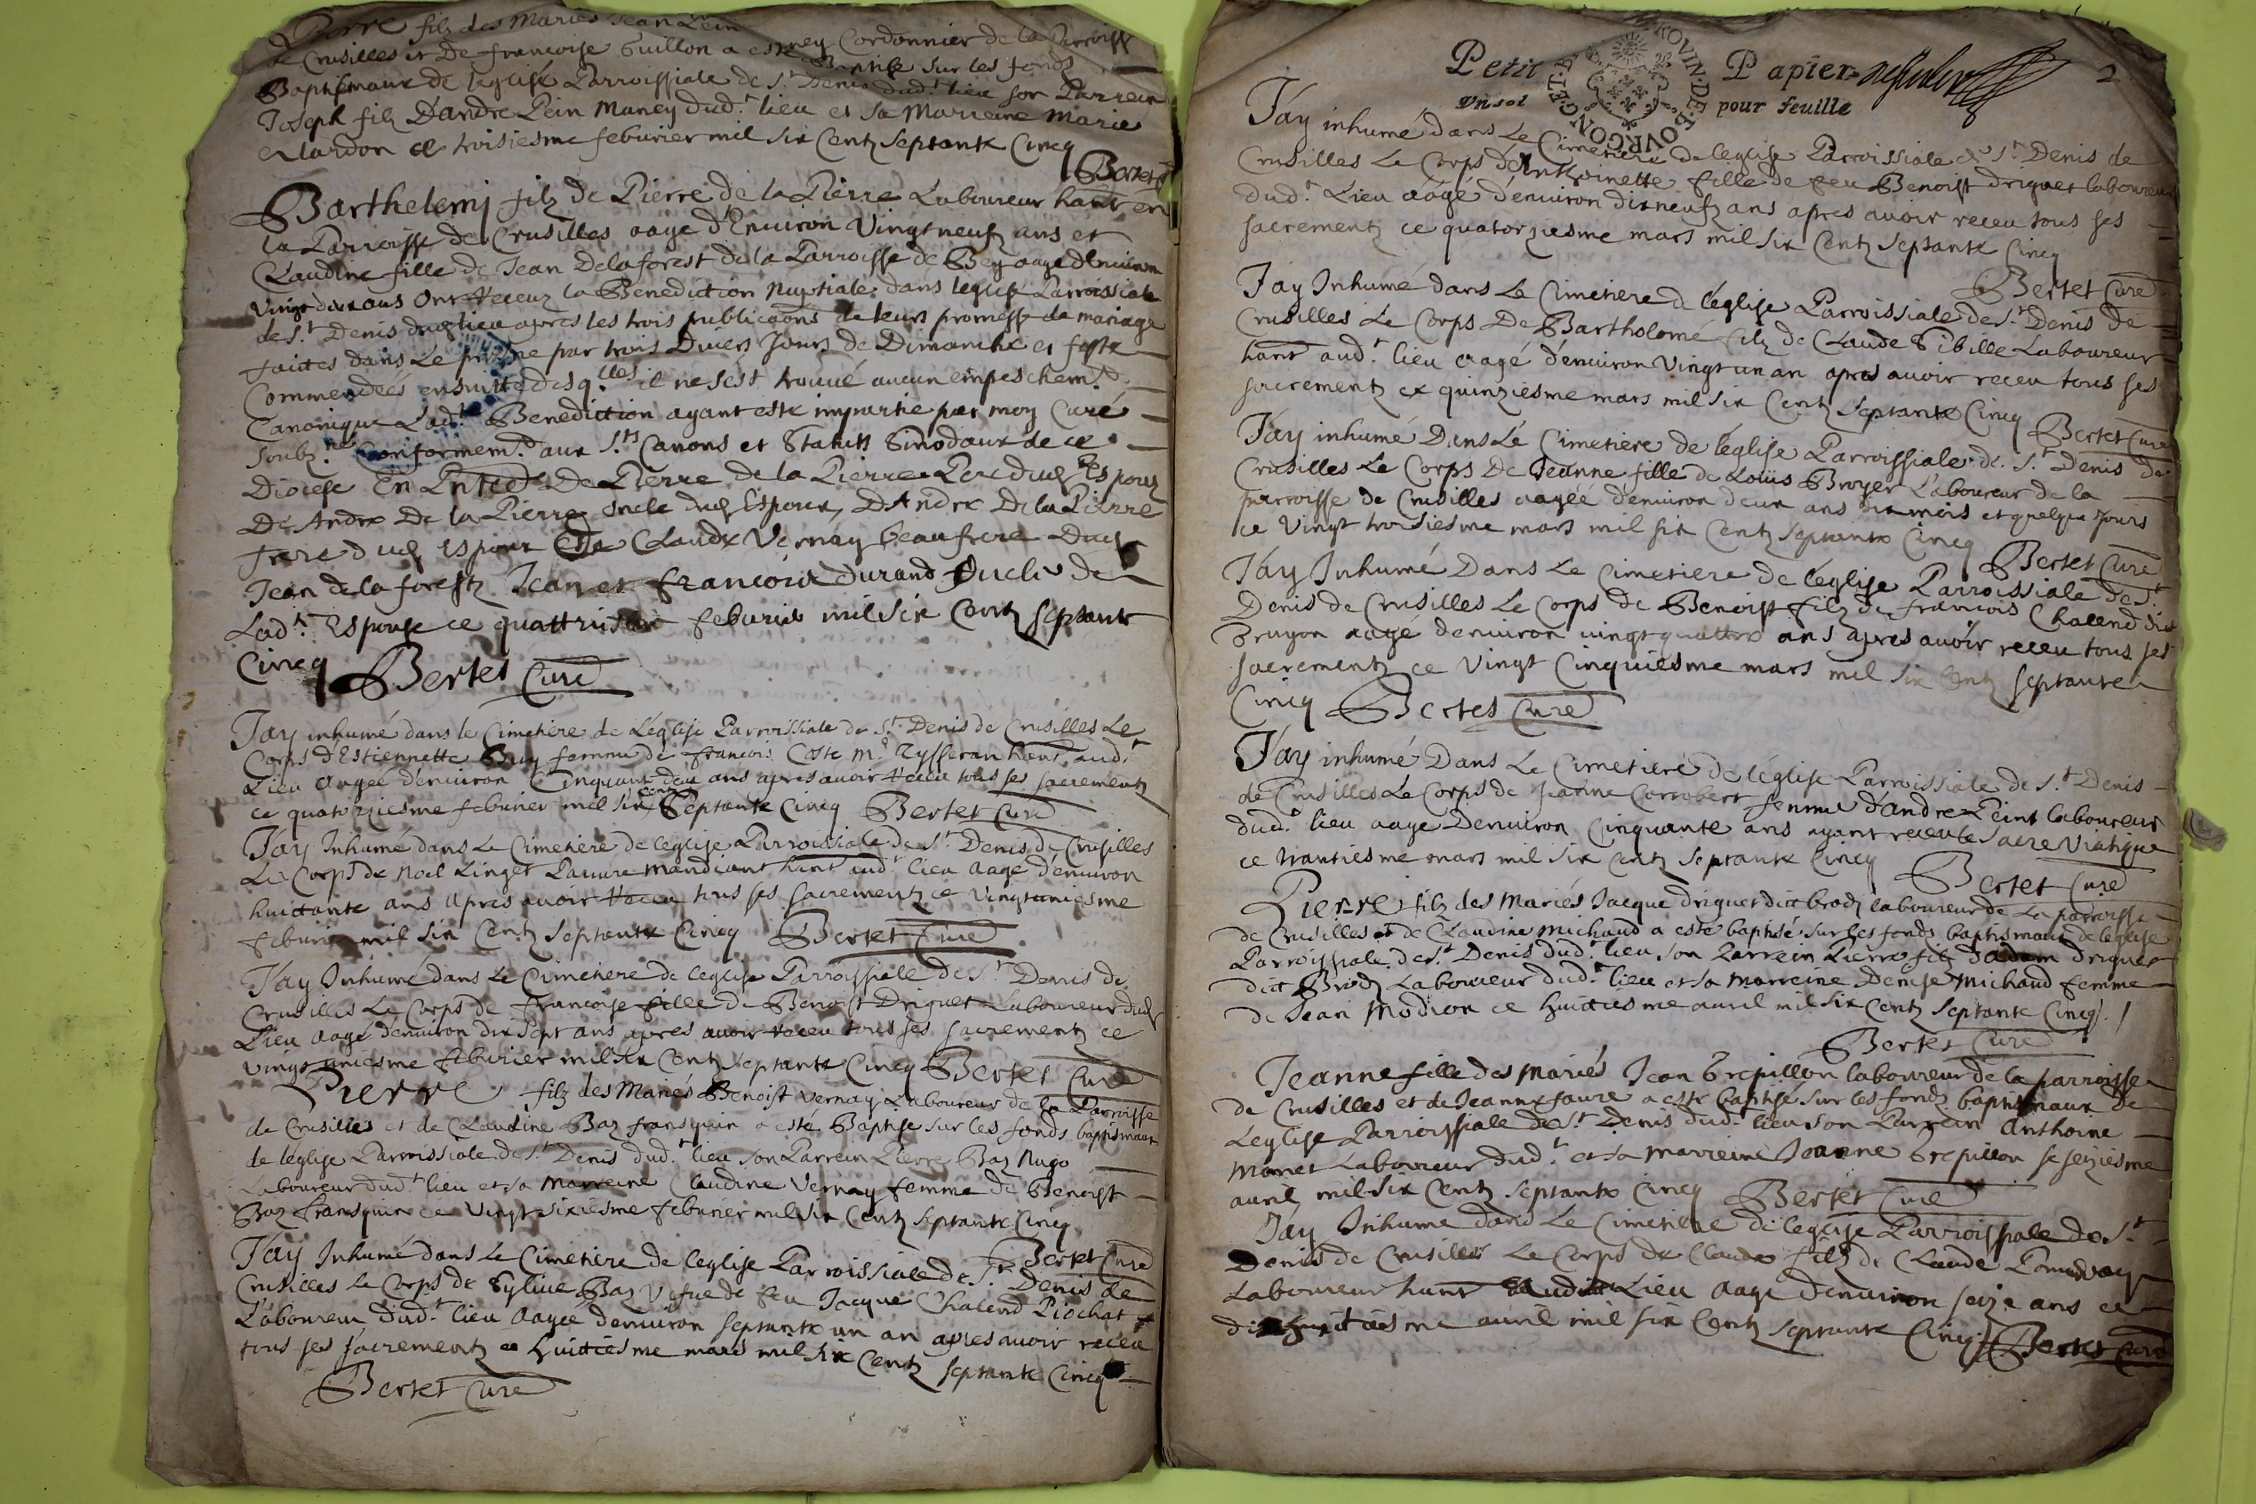 Pierre filz des Mariés Jean Pein
de Crusilles et De francoise Guillon a este Cordonnier de la Parroisse
Baptise sur les fonds
Baptismaux de leglise Parroissiale de St Denis dudt lieu son Parrein
Joseph filz D'andre Pein Maney dudt lieu et sa Marreine Marie
ce troisiesme feburier mil six Centz septante Cincq
Bertet
Barthelemj filz de Pierre de la Pierre Laboureur hant en
la Parroisse de Crusilles aage d'Enuiron Vingt neufz ans et
Claudine fille de Jean Delaforest de la Parroisse de Bey aage d'Enuiron
Vingt deux ans Ont Receuz la Benediction Nuptiale dans leglise Parroissiale
de St Denis dud lieu apres les trois publicaons de leurs promesses de mariage
faittes dans Le prosne par trois Diuers Jours de Dimanche et feste
Commendées ensuitte desq.lles il ne sest trouué aucun empeschemt
Canonique Ladte Benediction ayant este impartie par moy Curé
soubz.né Conformemt aux Sts Canons et Statuts Sinodaux de ce
Diocese En De Pierre de la Pierre Pere dud Espoux
De Andre De la Pierre oncle dud Espoux, D'Andre De la Pierre
frere dud Espoux De Claude Vernay beaufrere Dud
Jean de la forestz Jean et francois durand Oncle de
Ladte Espouse ce quattriesme feburier mil six Centz septante
Cincq Bertet Curé
J'ay inhumé dans le Cimetiere de L'eglise Parroissiale de St Denis de Crusilles Le
Corps d'Estiennette Buy femme de francois Coste Mre Tysseran hant audt
Lieu Aagée d'enuiron Cinquante deux ans apres auoir Receu tous ses sacrementz
ce quatorziesme feburier mil six Centz Septante Cincq Bertet Curé
J'ay Inhumé dans Le Cimetiere de leglise Parroissiale de St Denis de Crusilles
Le Corps de Noel Linget Pauure mandiant hant audt lieu Aagé d'enuiron
huictante ans apres auoir Receu tous ses sacrementz ce Vingtuniesme
feburier mil six Centz Septante Cincq Bertet Curé
J'ay Inhumé dans Le Cimetiere de leglise Parroissiale de St Denis de
Crusilles Le Corps de francoise fille de Benoist Driguet Laboureur dud
Lieu Aagé d'enuiron dix sept ans apres auoir Receu tous ses sacrementz ce
vingt uniesme feburier mil six Centz septante Cincq Bertet Curé
Pierre filz des Mariés Benoist Vernay Laboureur de la Parroisse
de Crusilles et de Claudine Baz fransquin a esté Baptise sur les fonds baptismaux
de leglise Parroissiale de St Denis dudt lieu son Parrein Pierre Baz Nugo
Laboureur dudt lieu et sa Marreine Claudine Vernay femme de Benoist
Baz fransquin ce Vingt sixiesme feburier mil six Centz septante Cincq
Bertet Curé
J'ay Inhumé dans Le Cimetiere de leglise Parroissiale de St Denis de
Crusilles Le Corps de Syluie Baz Vefue de feu Jacque Chalend Piochat
Laboureur Dudt lieu Aagée d'enuiron septante un an apres auoir receu
tous ses sacrementz ce huictiesme mars mil six Centz septante Cincq
Bertet Curé
Petit Papier 2
Vn sol pour feuille
BOVRGONG.ET.B
J'ay inhumé dans Le Cimetiere de leglise Parroissiale de St Denis de
Crusilles Le Corps d'Anthoinette fille de feu Benoist driguet laboureur
dudt Lieu aagé d'enuiron dixneufz ans apres auoir receu tous ses
sacrementz ce quatorziesme mars mil six Centz septante Cincq
Bertet Curé
J'ay Inhumé dans Le Cimetiere de l'eglise Parroissiale de St Denis de
Crusilles Le Corps De Bartholomé filz de Claude Sibille Laboureur
hant audt lieu eagé d'enuiron Vingt un an apres auoir receu tous ses
sacrementz ce quinziesme mars mil six Centz Septante Cincq Bertet Curé
J'ay inhumé Dans Le Cimetiere de l'eglise Parroissiale de St Denis de
Crusilles Le Corps De Jeanne fille de Louis Broyer Laboureur de la
parroisse de Crusilles aagée d'enuiron deux ans dix mois et quelque Jours
ce Vingt troisiesme mars mil six Centz septante Cincq Bertet Curé
J'ay Inhumé Dans Le Cimetiere de l'eglise Parroissiale de St
Denis de Crusilles Le Corps de Benoist filz de francois Chalend dit
Bruyon aagé d'enuiron vingt quattre ans apres auoir receu tous ses
sacrementz ce Vingt Cinquiesme mars mil six Centz septante
Cincq Bertet Curé
J'ay inhumé Dans Le Cimetiere de l'eglise Parroissiale de St Denis
de Crusilles Le Corps de Jeanne Corrobert femme d'andre Pein laboureur
dudt lieu aage Denuiron Cinquante ans ayant receu le sacre Viatique
ce trantiesme mars mil six Centz septante Cincq
Bertet Curé
Pierre filz des Mariés Jacque driguet dict brodz laboureur de La parroisse
de Crusilles et de Claudine Michaud a esté baptisé sur les fondz baptismaux de leglise
Parroissiale de St Denis dudt lieu son Parrein Pierre filz d'adam driguet
dict Brodz Laboureur dudt lieu et sa marreine Denise Michaud femme
de Jean Modion ce huictiesme auril mil six Centz septante Cincq
Bertet Curé
Jeanne fille des mariés Jean Grepillon laboureur de la parroisse
de Crusilles et de Jeanne faure a esté baptisé sur les fondz baptismaux de
Leglise Parroissiale de St Denis dudt lieu son Parrein Anthoine
Monet Laboureur dudt et sa marreine Jeanne Grepillon ce seiziesme
auril mil six Centz septante Cincq Bertet Curé
J'ay Inhume dans Le Cimetiere de leglise Parroissiale de St
Denis de Crusilles Le Corps de Claude filz de Claude
Laboureur hant audit Lieu aage d'enuiron seize ans ce
dixhuictiesme auril mil six Centz septante Cincq Bertet Curé